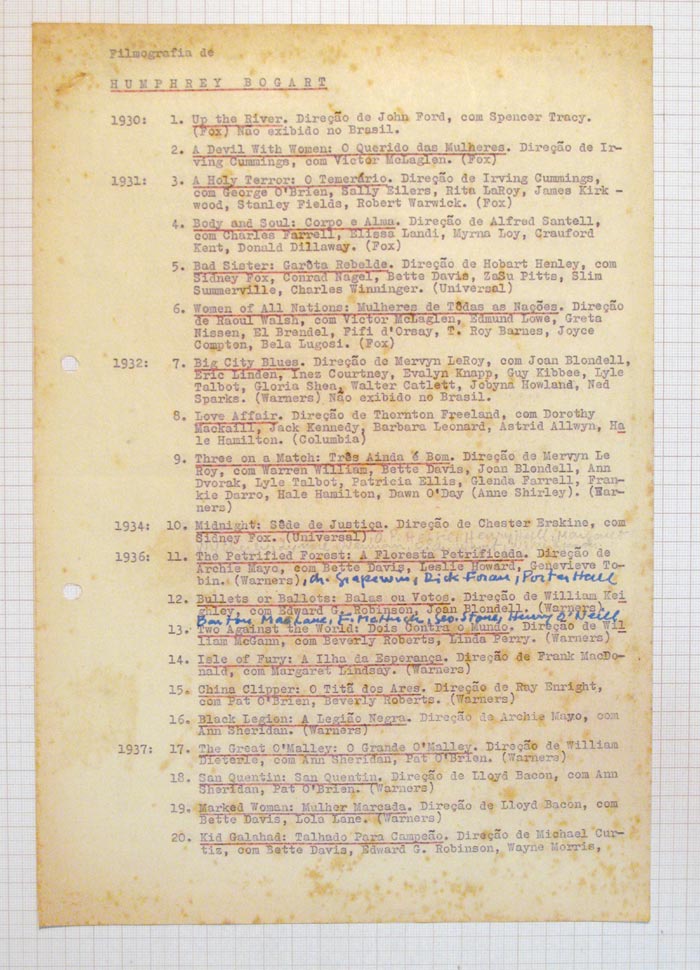 Filmografia de
HUMPHREY BOGART
1930: 1. Up the River. Direção de John Ford, com Spencer Tracy.
(Fox) Não exibido no Brasil.
2. A Devil With Women: O Querido das Mulheres. Direção de Ir-
ving Cummings, com Victor McLaglen. (Fox)
1931: 3. A Holy Terror: O Temerário. Direção de Irving Cummings,
com George O'Brien, Sally Eilers, Rita LaRoy, James Kirk -
wood, Stanley Fields, Robert Warwick. (Fox)
4. Body and Soul: Corpo e Alma. Direção de Alfred Santell,
com Charles Farrell, Elissa Landi, Myrna Loy, Crauford
Kent, Donald Dillaway. (Fox)
5. Bad Sister: Garôta Rebelde. Direção de Hobart Henley, com
Sidney Fox, Conrad Nagel, Bette Davis, ZaSu Pitts, Slim
Summerville, Charles Winninger. (Universal)
6. Women of All Nations: Mulheres de Tôdas as Nações. Direção
de Raoul Walsh, com Victor McLaglen, Edmund Lowe, Greta
Nissen, El Brendel, Fifi d'Orsay, T. Roy Barnes, Joyce
Compton, Bela Lugosi. (Fox)
1932: 7. Big City Blues. Direção de Mervyn LeRoy, com Joan Blondell,
Eric Linden, Inez Courtney, Evalyn Knapp, Guy Kibbee, Lyle
Talbot, Gloria Shea, Walter Catlett, Jobyna Howland, Ned
Sparks. (Warners) Não exibido no Brasil.
8. Love Affair. Direção de Thornton Freeland, com Dorothy
Mackaill, Jack Kennedy, Barbara Leonard, Astrid Allwyn, Ha
le Hamilton. (Columbia)
9. Three on a Match: Três Ainda é Bom. Direção de Mervyn Le
Roy, com Warren William, Bette Davis, Joan Blondell, Ann
Dvorak, Lyle Talbot, Patricia Ellis, Glenda Farrell, Fran-
kie Darro, Hale Hamilton, Dawn O'Day (Anne Shirley). (War-
ners)
1934: 10. Midnight: Sêde de Justiça. Direção de Chester Erskine, com
Sidney Fox. (Universal) Henry Hull, Margaret
1936: 11. The Petrified Forest: A Floresta Petrificada. Direção de
Archie Mayo, com Bette Davis, Leslie Howard, Genevieve To-
bin. (Warners), Ch. Grapewin, Dick Foran, Porter Hall
12. Bullets or Ballots: Balas ou Votos. Direção de William Kei
ghley, com Edward G. Robinson, Joan Blondell. (Warners).
Barton MacLane, F. Mattruck, Geo. Stone, Henry O'Neill
13. Two Against the World: Dois Contra o Mundo. Direção de Wil
liam McGann, com Beverly Roberts, Linda Perry. (Warners)
14. Isle of Fury: A Ilha da Esperança. Direção de Frank MacDo-
nald, com Margaret Lindsay. (Warners)
15. China Clipper: O Titã dos Ares. Direção de Ray Enright,
com Pat O'Brien, Beverly Roberts. (Warners)
16. Black Legion: A Legião Negra. Direção de Archie Mayo, com
Ann Sheridan. (Warners)
1937: 17. The Great O'Malley: O Grande O'Malley. Direção de William
Dieterle, com Ann Sheridan, Pat O'Brien. (Warners)
18. San Quentin: San Quentin. Direção de Lloyd Bacon, com Ann
Sheridan, Pat O'Brien. (Warners)
19. Marked Woman: Mulher Marcada. Direção de Lloyd Bacon, com
Bette Davis, Lola Lane. (Warners)
20. Kid Galahad: Talhado Para Campeão. Direção de Michael Cur-
tiz, com Bette Davis, Edward G. Robinson, Wayne Morris,